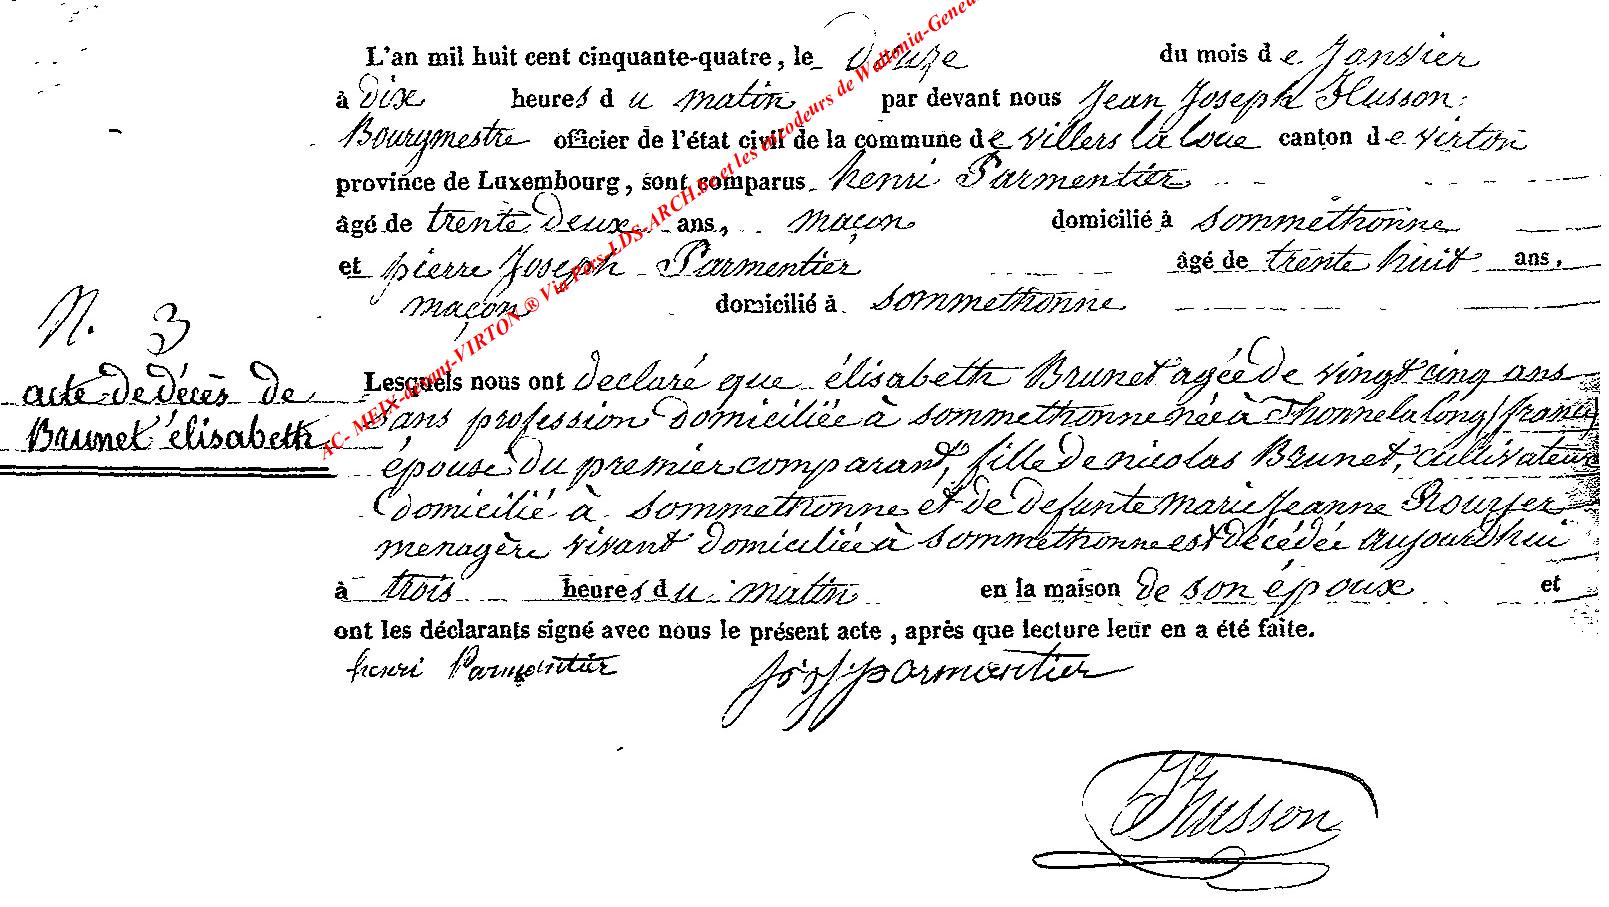 L'an mil huit cent cinquante-quatre, le douze du mois de Janvier
à dix heures du matin par devant nous Jean Joseph Husson
Bourgmestre officier de l'état civil de la commune de villers la loue canton de virton
province de Luxembourg, sont comparus henri Parmentier
âgé de trente deux ans, maçon domicilié à sommethonne
et pierre Joseph Parmentier âgé de trente huit ans,
maçon domicilié à sommethonne
N. 3
acte de décès de
Brunet élisabeth
Lesquels nous ont declaré que élisabeth Brunet agée de vingt cinq ans
sans profession domiciliée à sommethonne née à Thonnelalong (france)
épouse du premier comparant, fille de nicolas Brunet, cultivateur
domicilié à sommethonne et de defunte marie Jeanne
menagère vivant domiciliée à sommethonne est décédée aujourdhui
à trois heures du matin en la maison de son époux et
ont les déclarants signé avec nous le présent acte, après que lecture leur en a été faite.
henri Parmentier parmentier
JJHusson
AC- MEIX-devant-VIRTON ® Via Pars-LDS-ARCH.be et les encodeurs de Wallonia-Genea